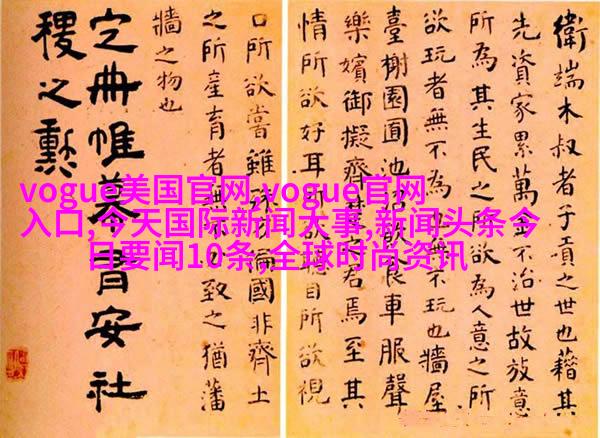 衛端木叔者子貢之世也藉其
先資家累萬金不治世故放意
所為其生民之所欲為人意之所
欲玩者無不為也無不玩也牆屋
臺榭園囿池沼飲食車服聲
樂嬪御擬齊楚之君焉至其
情所欲好耳所欲聽目所欲視
口所欲嘗雖殊方偏國非齊土
之所產育者無不必致之猶藩
牆之物也
定冊帷幕有安社
稷之勳
vogue美国官网,vogue官网
入口,今天国际新闻大事,新闻头条今
日要闻10条,全球时尚资讯